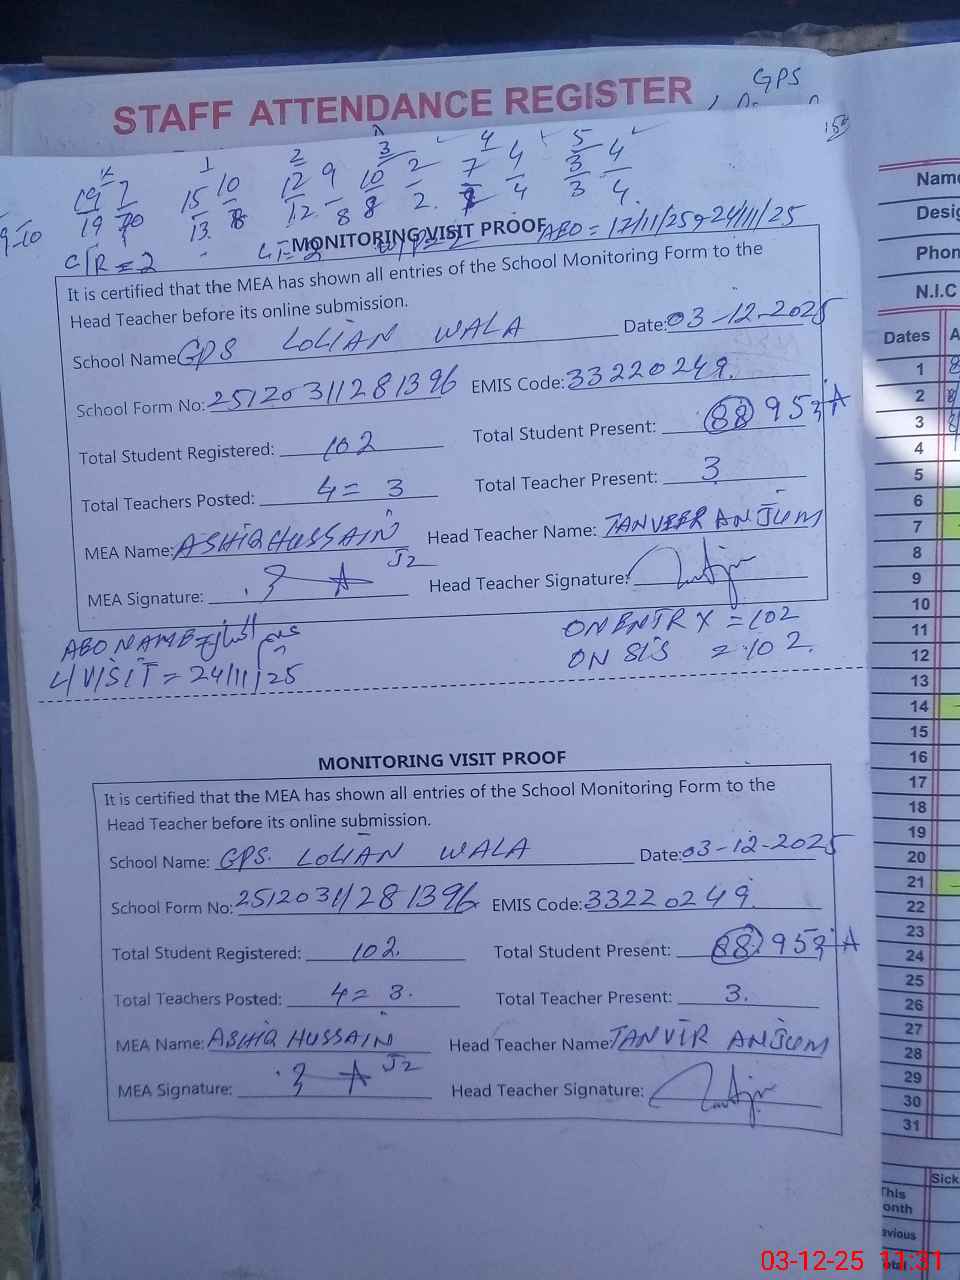 GPS
STAFF ATTENDANCE REGISTER
1 2 3 4 5
19 7 15 10 12 9 10 2 7 4 3 4
19 13 8 12 8 8 2 4 3 4
9-10
C/R = 2
MONITORING VISIT PROOF
AEO = 17/11/25, 24/11/25
It is certified that the MEA has shown all entries of the School Monitoring Form to the
Head Teacher before its online submission.
School Name: GPS LOLIAN WALA Date: 03-12-2025
School Form No: 25120311281396 EMIS Code: 33220249.
Total Student Registered: 102 Total Student Present: 88
Total Teachers Posted: 4 = 3 Total Teacher Present: 3
MEA Name: ASHIQ HUSSAIN Head Teacher Name: TANVEER ANJUM
J2
MEA Signature: Head Teacher Signature:
AEO NAME=
L/VISIT = 24/11/25
ON ENTRY = 102
ON SIS = 102.
MONITORING VISIT PROOF
It is certified that the MEA has shown all entries of the School Monitoring Form to the
Head Teacher before its online submission.
School Name: GPS. LOLIAN WALA Date: 03-12-2025
School Form No: 25120311281396 EMIS Code: 33220249.
Total Student Registered: 102. Total Student Present: 88
Total Teachers Posted: 4 = 3. Total Teacher Present: 3.
MEA Name: ASHIQ HUSSAIN Head Teacher Name: TANVIR ANJUM
J2
MEA Signature: Head Teacher Signature:
Name
Desig
Phon
N.I.C
Dates A
1 8
2 8
3 8
4
5
6
7
8
9
10
11
12
13
14
15
16
17
18
19
20
21
22
23
24
25
26
27
28
29
30
31
Sick
This
onth
evious
otal
03-12-25 11:31